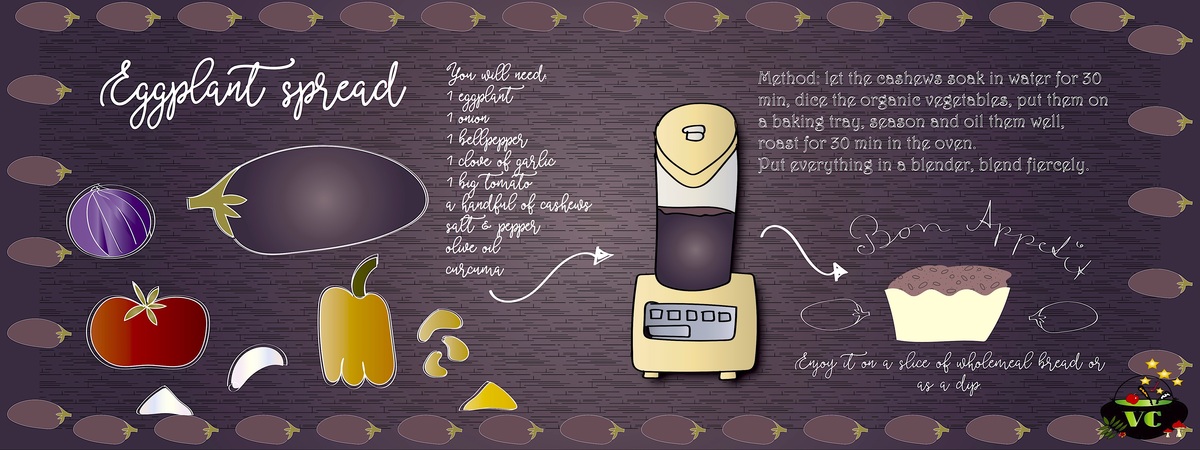 Eggplant spread
You will need:
1 eggplant
1 onion
1 bellpepper
1 clove of garlic
1 big tomato
a handful of cashews
salt & pepper
olive oil
curcuma
Method: let the cashews soak in water for 30
min, dice the organic vegetables, put them on
a baking tray, season and oil them well,
roast for 30 min in the oven.
Put everything in a blender, blend fiercely.
Bon Appetit
Enjoy it on a slice of wholemeal bread or
as a dip.
VC